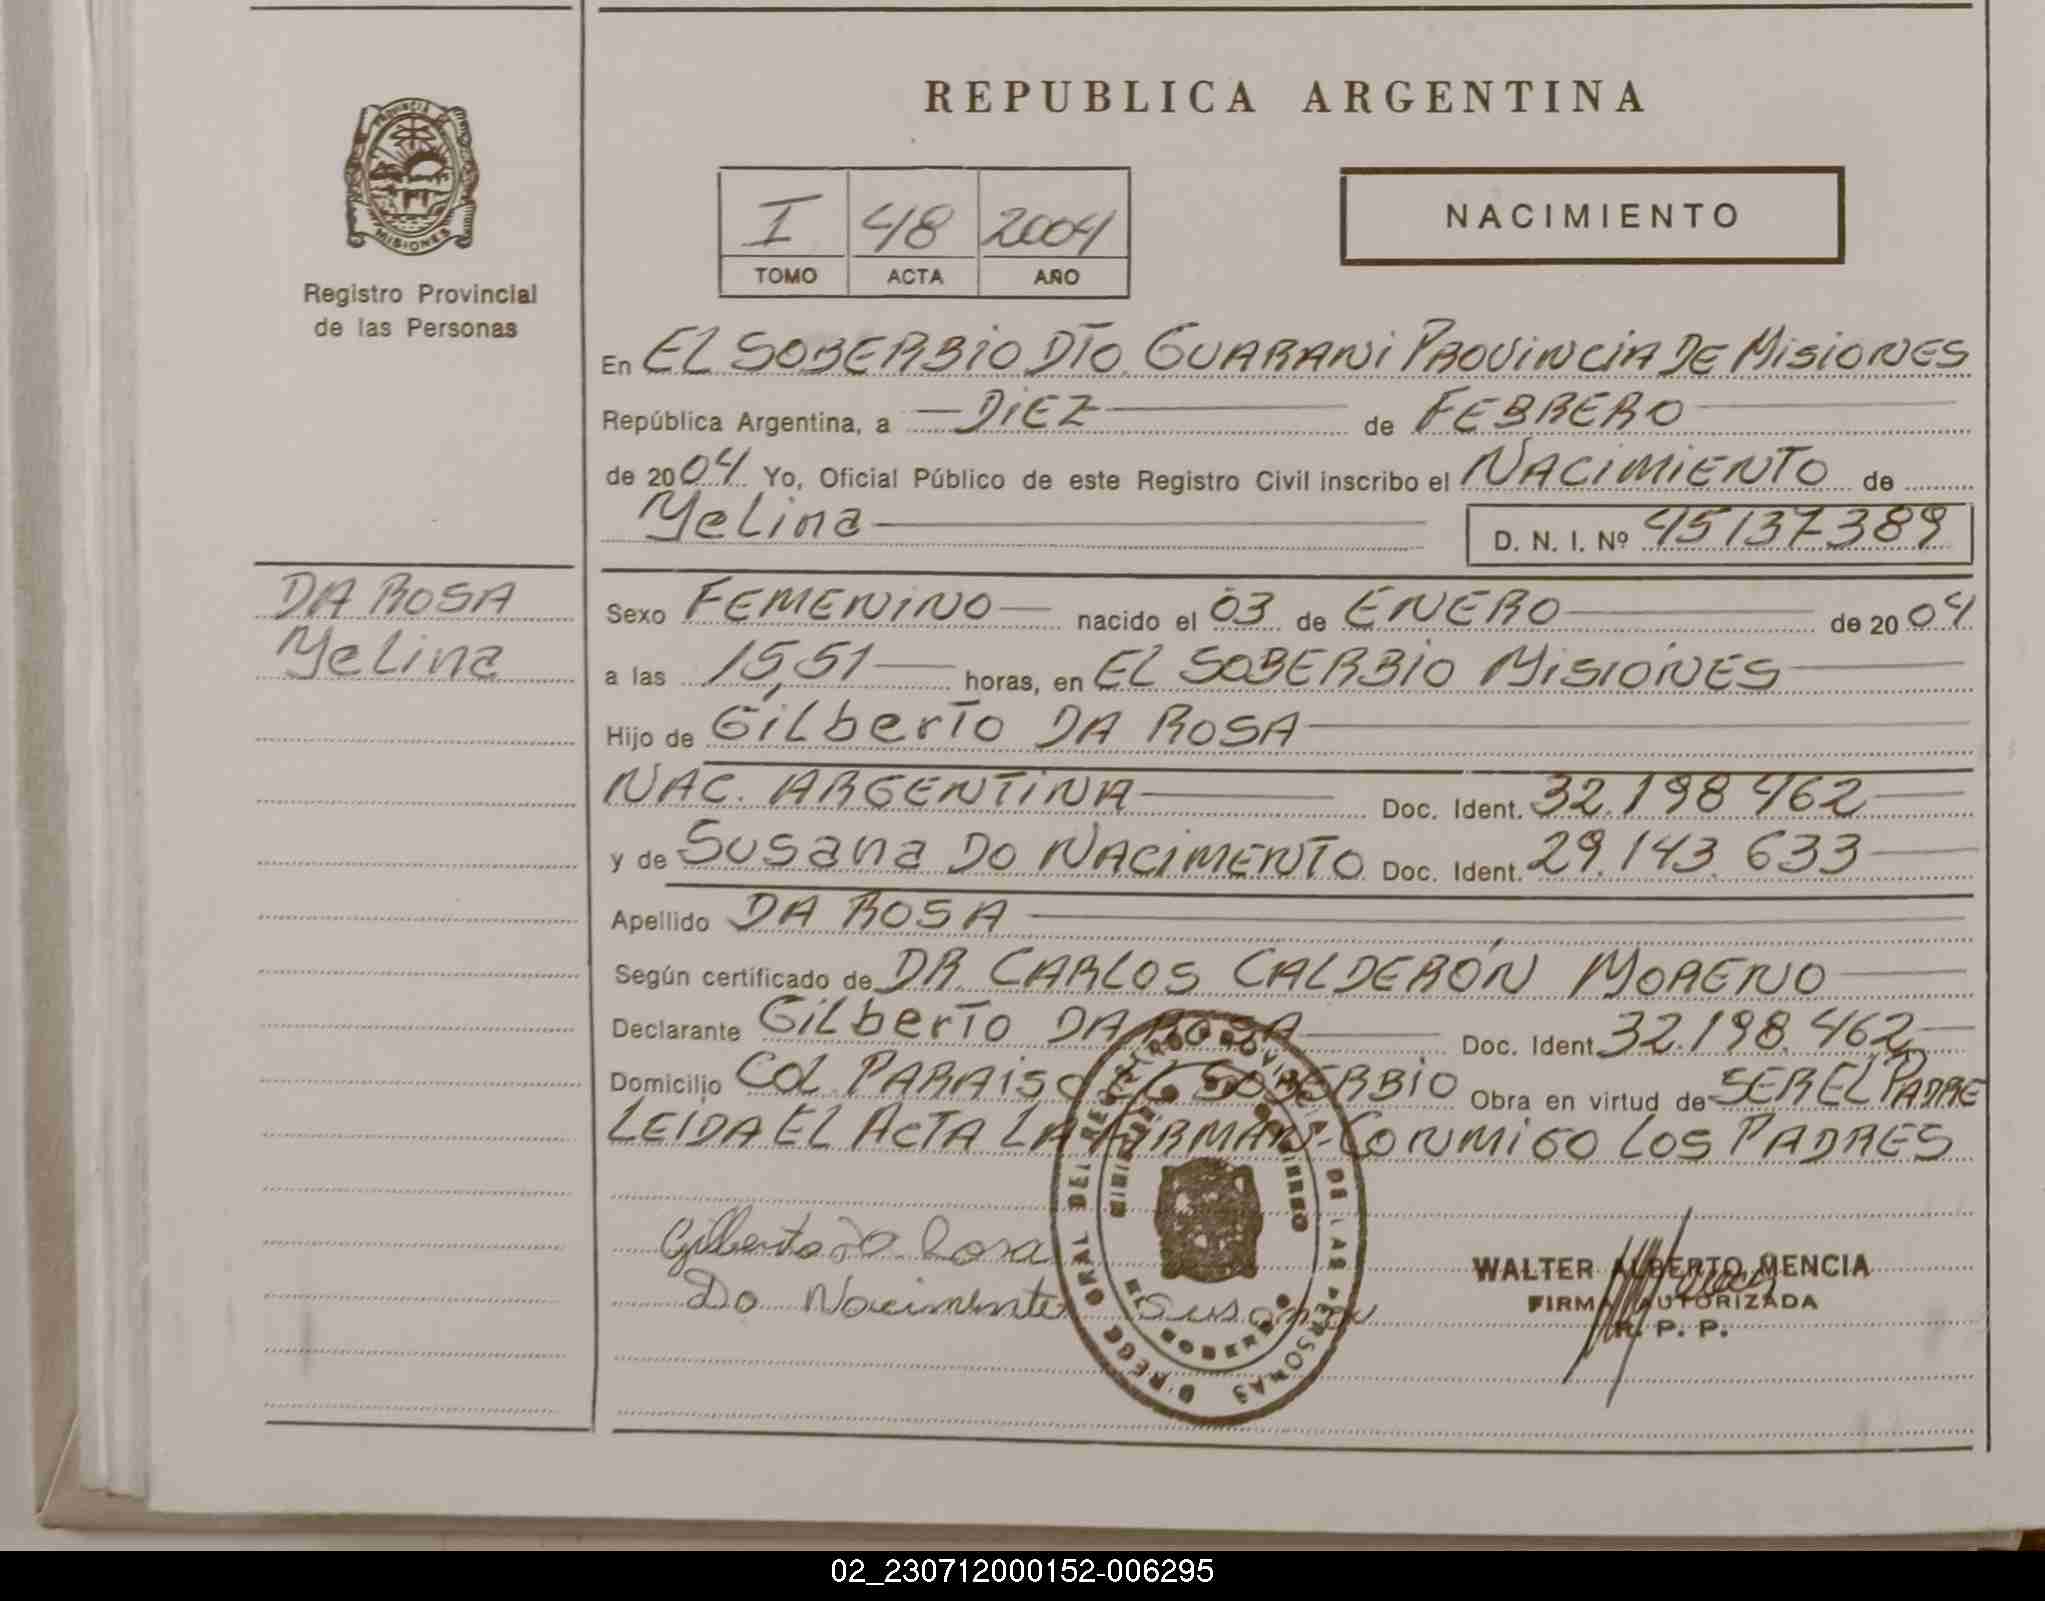 PROVINCIA DE
MISIONES
Registro Provincial
de las Personas
DA ROSA
Yelina
REPUBLICA ARGENTINA
I 48 2004
TOMO ACTA AÑO
NACIMIENTO
En EL SOBERBIO DTO. GUARANI PROVINCIA DE MISIONES
República Argentina, a DIEZ de FEBRERO
de 2004 Yo, Oficial Público de este Registro Civil inscribo el NACIMIENTO de
Yelina D. N. I. Nº 45137389
Sexo FEMENINO nacido el 03 de ENERO de 2004
a las 15,51 horas, en EL SOBERBIO MISIONES
Hijo de Gilberto DA ROSA
NAC. ARGENTINA Doc. Ident. 32.198.462
y de Susana DO NACIMENTO Doc. Ident. 29.143.633
Apellido DA ROSA
Según certificado de DR. CARLOS CALDERÓN MORENO
Declarante Gilberto DA ROSA Doc. Ident. 32.198.462
Domicilio COL. PARAISO EL SOBERBIO Obra en virtud de SER EL PADRE
LEIDA EL ACTA LA FIRMAN CONMIGO LOS PADRES
Gilberto Da Rosa
Do Nacimento Susana
WALTER ALBERTO MENCIA
FIRMA AUTORIZADA
R. P. P.
GRAL DEL REGISTRO PROVINCIAL DE LAS PERSONAS
EL SOBERBIO
02_230712000152-006295